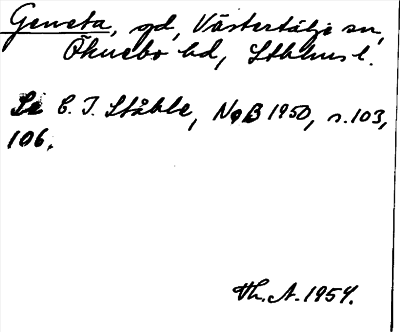 Geneta, gd, Västertälje sn,
Öknebo hd, Sthlms l.
Se C. I. Ståhle, NoB 1950, s. 103,
106.
Th. A. 1954.